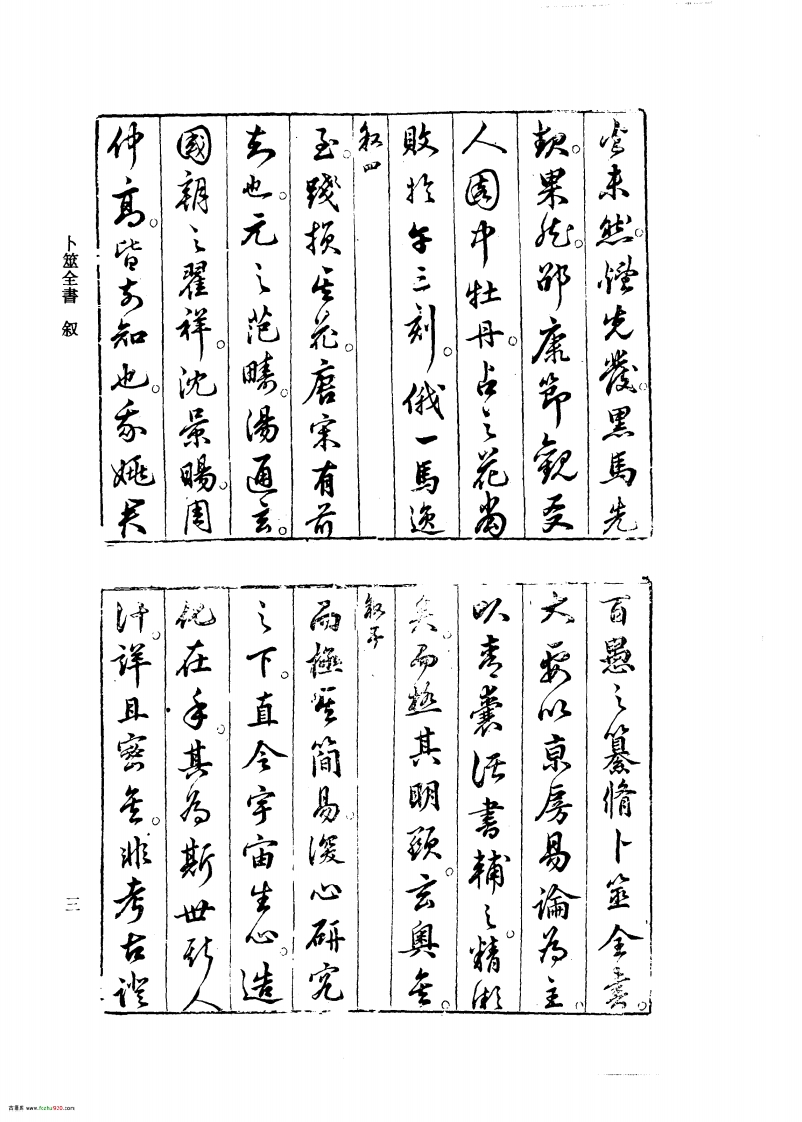 當未然。煙先發。黑馬先
䫆果然。邵康節觀友
人園中牡丹。占之花當
敗於午三刻。俄一馬逸
叙四
至。踐損其花。唐宋有前
知也。元之范疇。湯通玄。
國朝之翟祥。沈景暘。周
仲高。皆前知也。我姚君
百愚之纂脩卜筮全書。
大要以京房易論為主。
以青囊諸書輔之。精微
矣。而極其明顯。玄奧矣。
而極其簡易。潛心研究
之下。直令宇宙生心。造
化在手。其為斯世斯人
計。詳且密矣。非考古證
卜筮全書 叙
三
百墨库 www.fozhu920.com